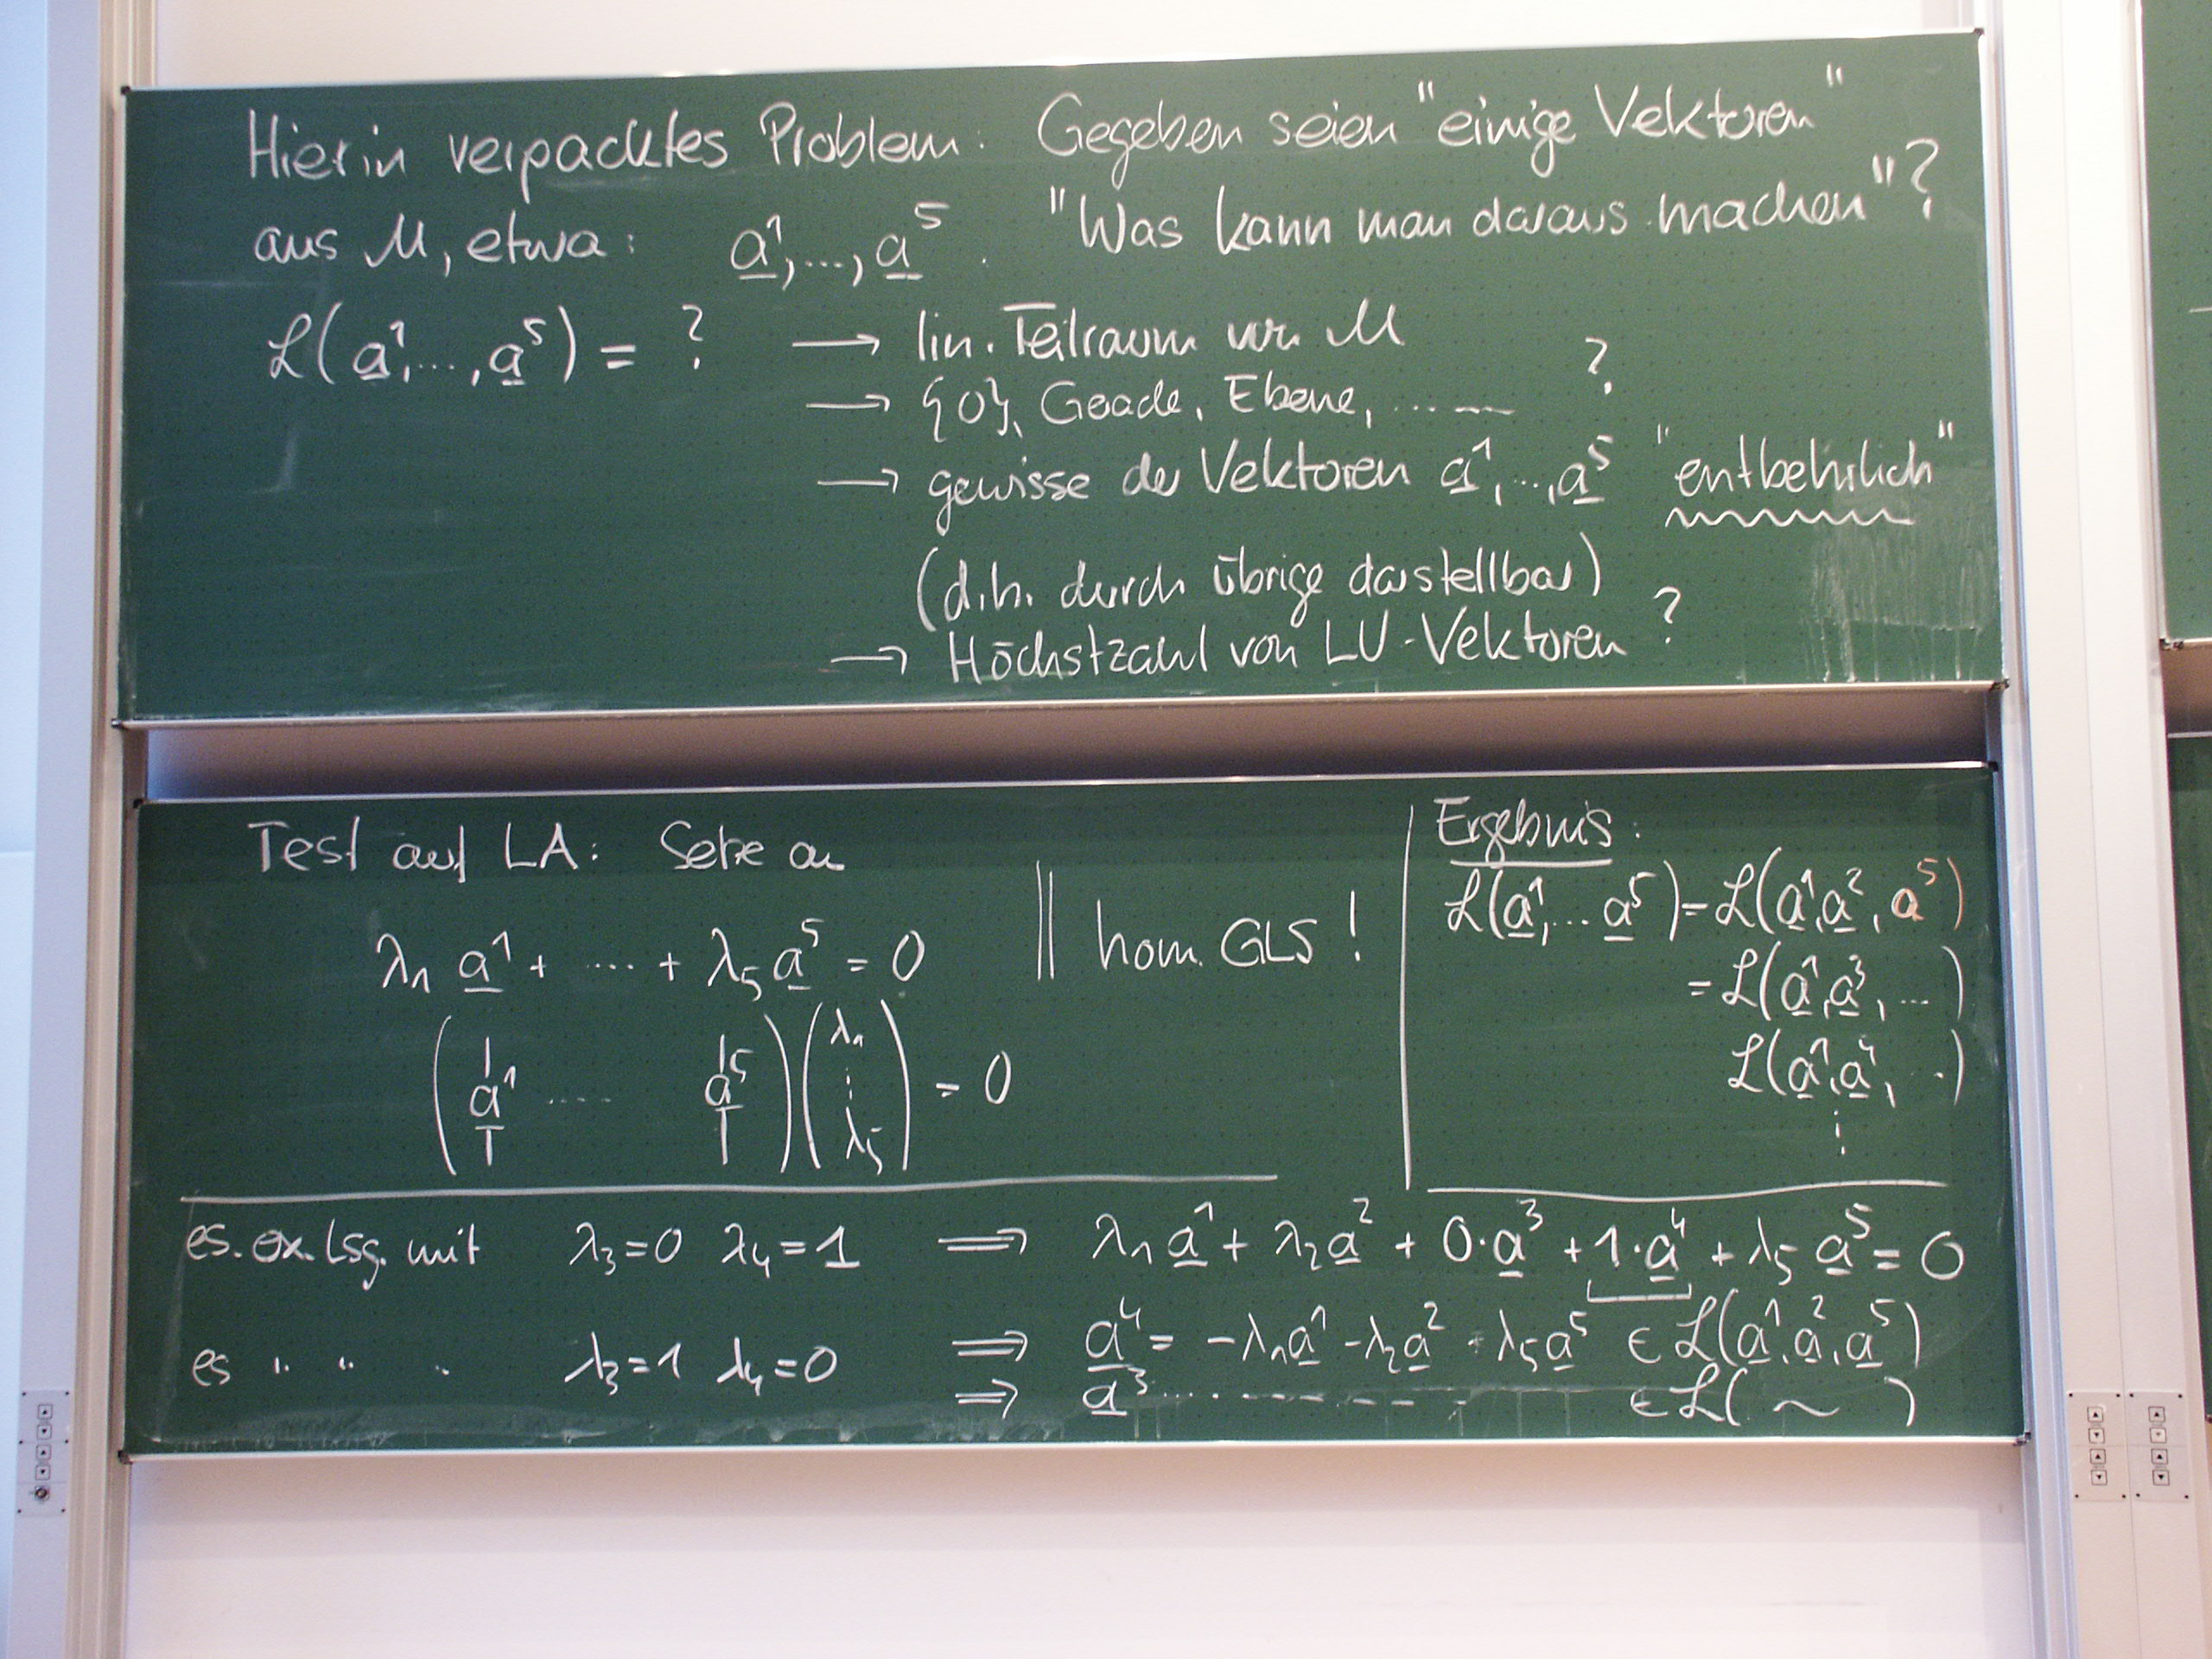 Hierin verpacktes Problem: Gegeben seien "einige Vektoren"
aus M, etwa: a¹, ..., a⁵. "Was kann man daraus machen"?
ℒ(a¹, ..., a⁵) = ? → lin. Teilraum von M
→ {0}, Gerade, Ebene, ..... ?
→ gewisse der Vektoren a¹, ..., a⁵ "entbehrlich"
(d.h. durch übrige darstellbar) ?
→ Höchstzahl von LU-Vektoren
Test auf LA: Setze an
λ₁ a¹ + .... + λ₅ a⁵ = 0 || hom. GLS !
( a¹ ..... a⁵ ) ( λ₁ ⋮ λ₅ ) = 0
Ergebnis:
ℒ(a¹, ... a⁵) = ℒ(a¹, a², a⁵)
= ℒ(a¹, a³, ...)
ℒ(a¹, a⁴, ..)
⋮
es. ex. Lsg. mit λ₃=0 λ₄=1 ⟹ λ₁ a¹ + λ₂ a² + 0·a³ + 1·a⁴ + λ₅ a⁵ = 0
⟹ a⁴ = -λ₁a¹ - λ₂a² - λ₅a⁵ ∈ ℒ(a¹, a², a⁵)
es " " " λ₃=1 λ₄=0 ⟹ a³ .......... ∈ ℒ( ~ )